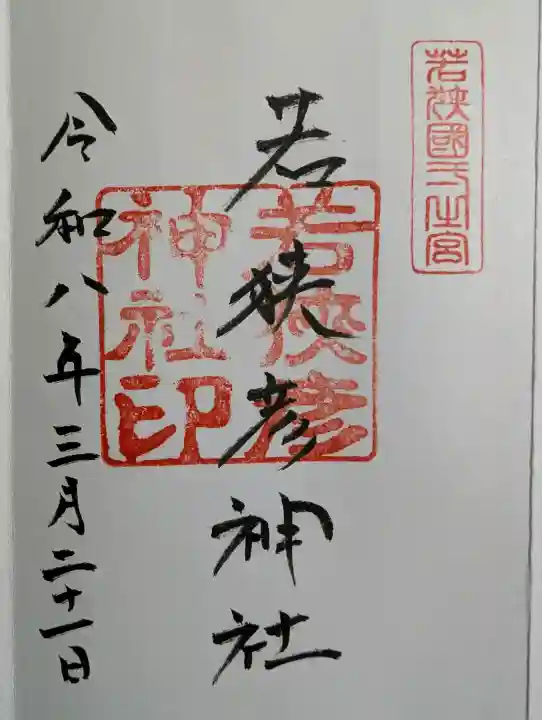 若狹國一宮
若狭彦神社
若狹彦
神社印
令和八年三月二十一日